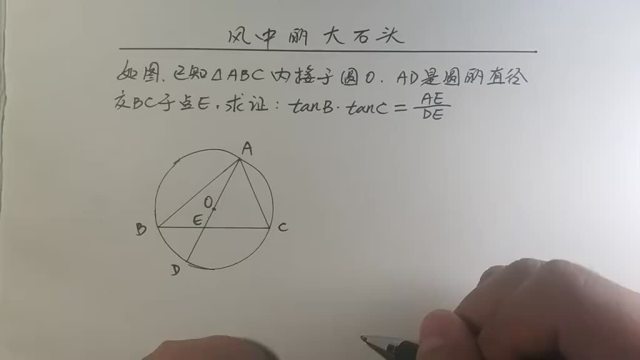 风中的大石头
如图.已知△ABC内接于圆O.AD是圆的直径
交BC于点E.求证:tanB·tanC=AE/DE
A
O
B
E
C
D